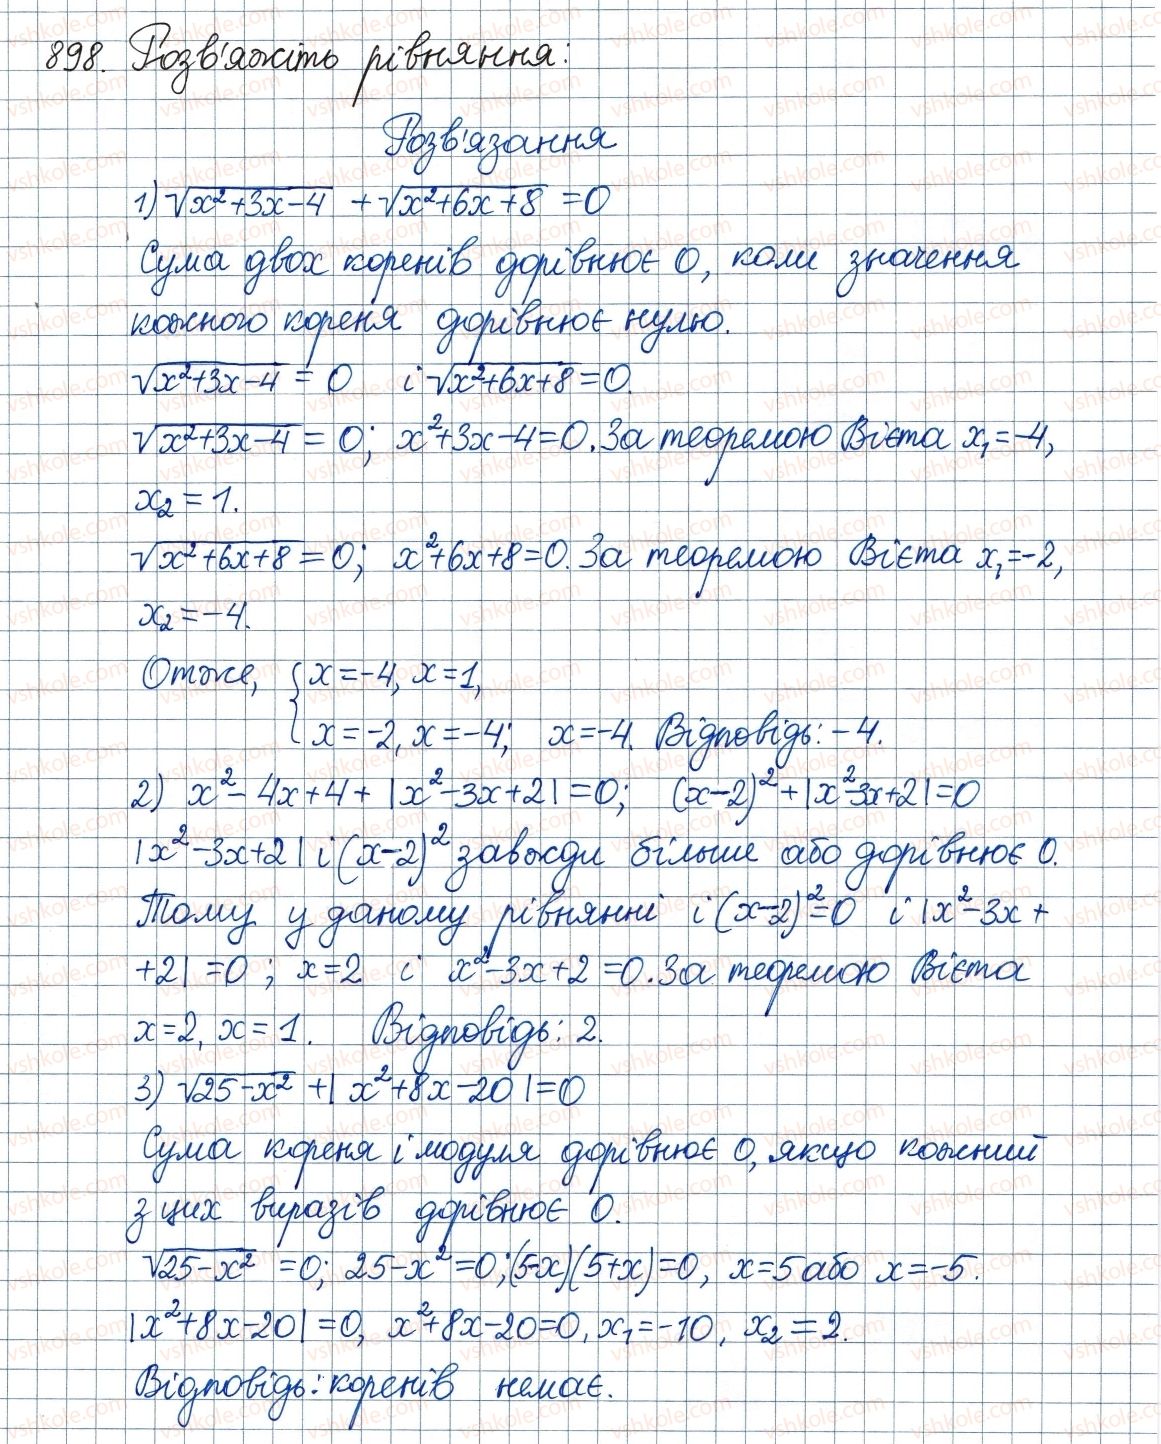 898. Розв'яжіть рівняння:
Розв'язання
1) √(x²+3x-4) + √(x²+6x+8) = 0
Сума двох коренів дорівнює 0, коли значення
кожного кореня дорівнює нулю.
√(x²+3x-4) = 0 і √(x²+6x+8) = 0.
√(x²+3x-4) = 0; x²+3x-4=0. За теоремою Вієта x₁=-4,
x₂ = 1.
√(x²+6x+8) = 0; x²+6x+8=0. За теоремою Вієта x₁=-2,
x₂ = -4.
Отже, { x=-4, x=1,
x=-2, x=-4; x=-4. Відповідь: -4.
2) x²-4x+4+|x²-3x+2|=0; (x-2)²+|x²-3x+2|=0
|x²-3x+2| і (x-2)² завжди більше або дорівнює 0.
Тому у даному рівнянні і (x-2)²=0 і |x²-3x+
+2|=0; x=2 і x²-3x+2=0. За теоремою Вієта
x=2, x=1. Відповідь: 2.
3) √(25-x²) + |x²+8x-20|=0
Сума кореня і модуля дорівнює 0, якщо кожний
з цих виразів дорівнює 0.
√(25-x²) = 0; 25-x²=0; (5-x)(5+x)=0, x=5 або x=-5.
|x²+8x-20|=0, x²+8x-20=0, x₁=-10, x₂=2.
Відповідь: коренів немає.
vshkole.com